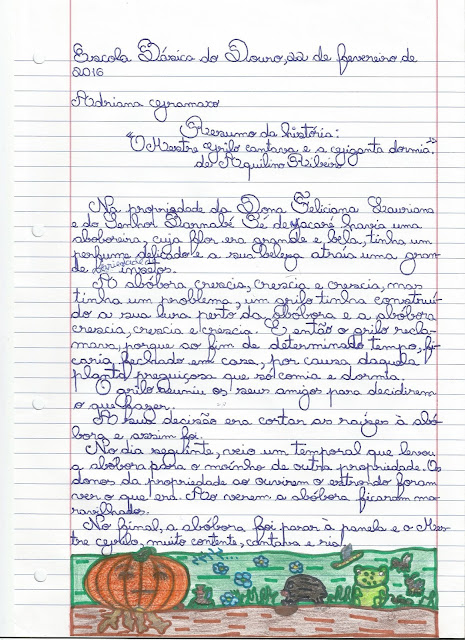 Escola Básica do Douro, 22 de fevereiro de
2016
Adriana Gramaxo
Resumo da história:
"O Mestre Grilo cantava e a Giganta dormia"
de Aquilino Ribeiro
Na propriedade da Dona Feliciana Lauriana
e do Senhor Barnabé Pé de Jacaré havia uma
aboboreira, cuja flor era grande e bela, tinha um
perfume delicado e a sua beleza atraía uma gran-
de variedade de insetos.
A abóbora crescia, crescia e crescia, mas
tinha um problema, um grilo tinha construí-
do a sua lura perto da abóbora e a abóbora
crescia, crescia e crescia. E então o grilo recla-
mava, porque ao fim de determinado tempo, fi-
caria fechado em casa, por causa daquela
planta preguiçosa que só comia e dormia.
O grilo reuniu os seus amigos para decidirem
o que fazer.
A sua decisão era cortar as raízes à abó-
bora e assim foi.
No dia seguinte, veio um temporal que levou
a abóbora para o moínho de outra propriedade. Os
donos da propriedade ao ouvirem o estrondo foram
ver o que era. Ao verem a abóbora ficaram ma-
ravilhados.
No final, a abóbora foi parar à panela e o Mes-
tre Grilo, muito contente, cantava e ria!